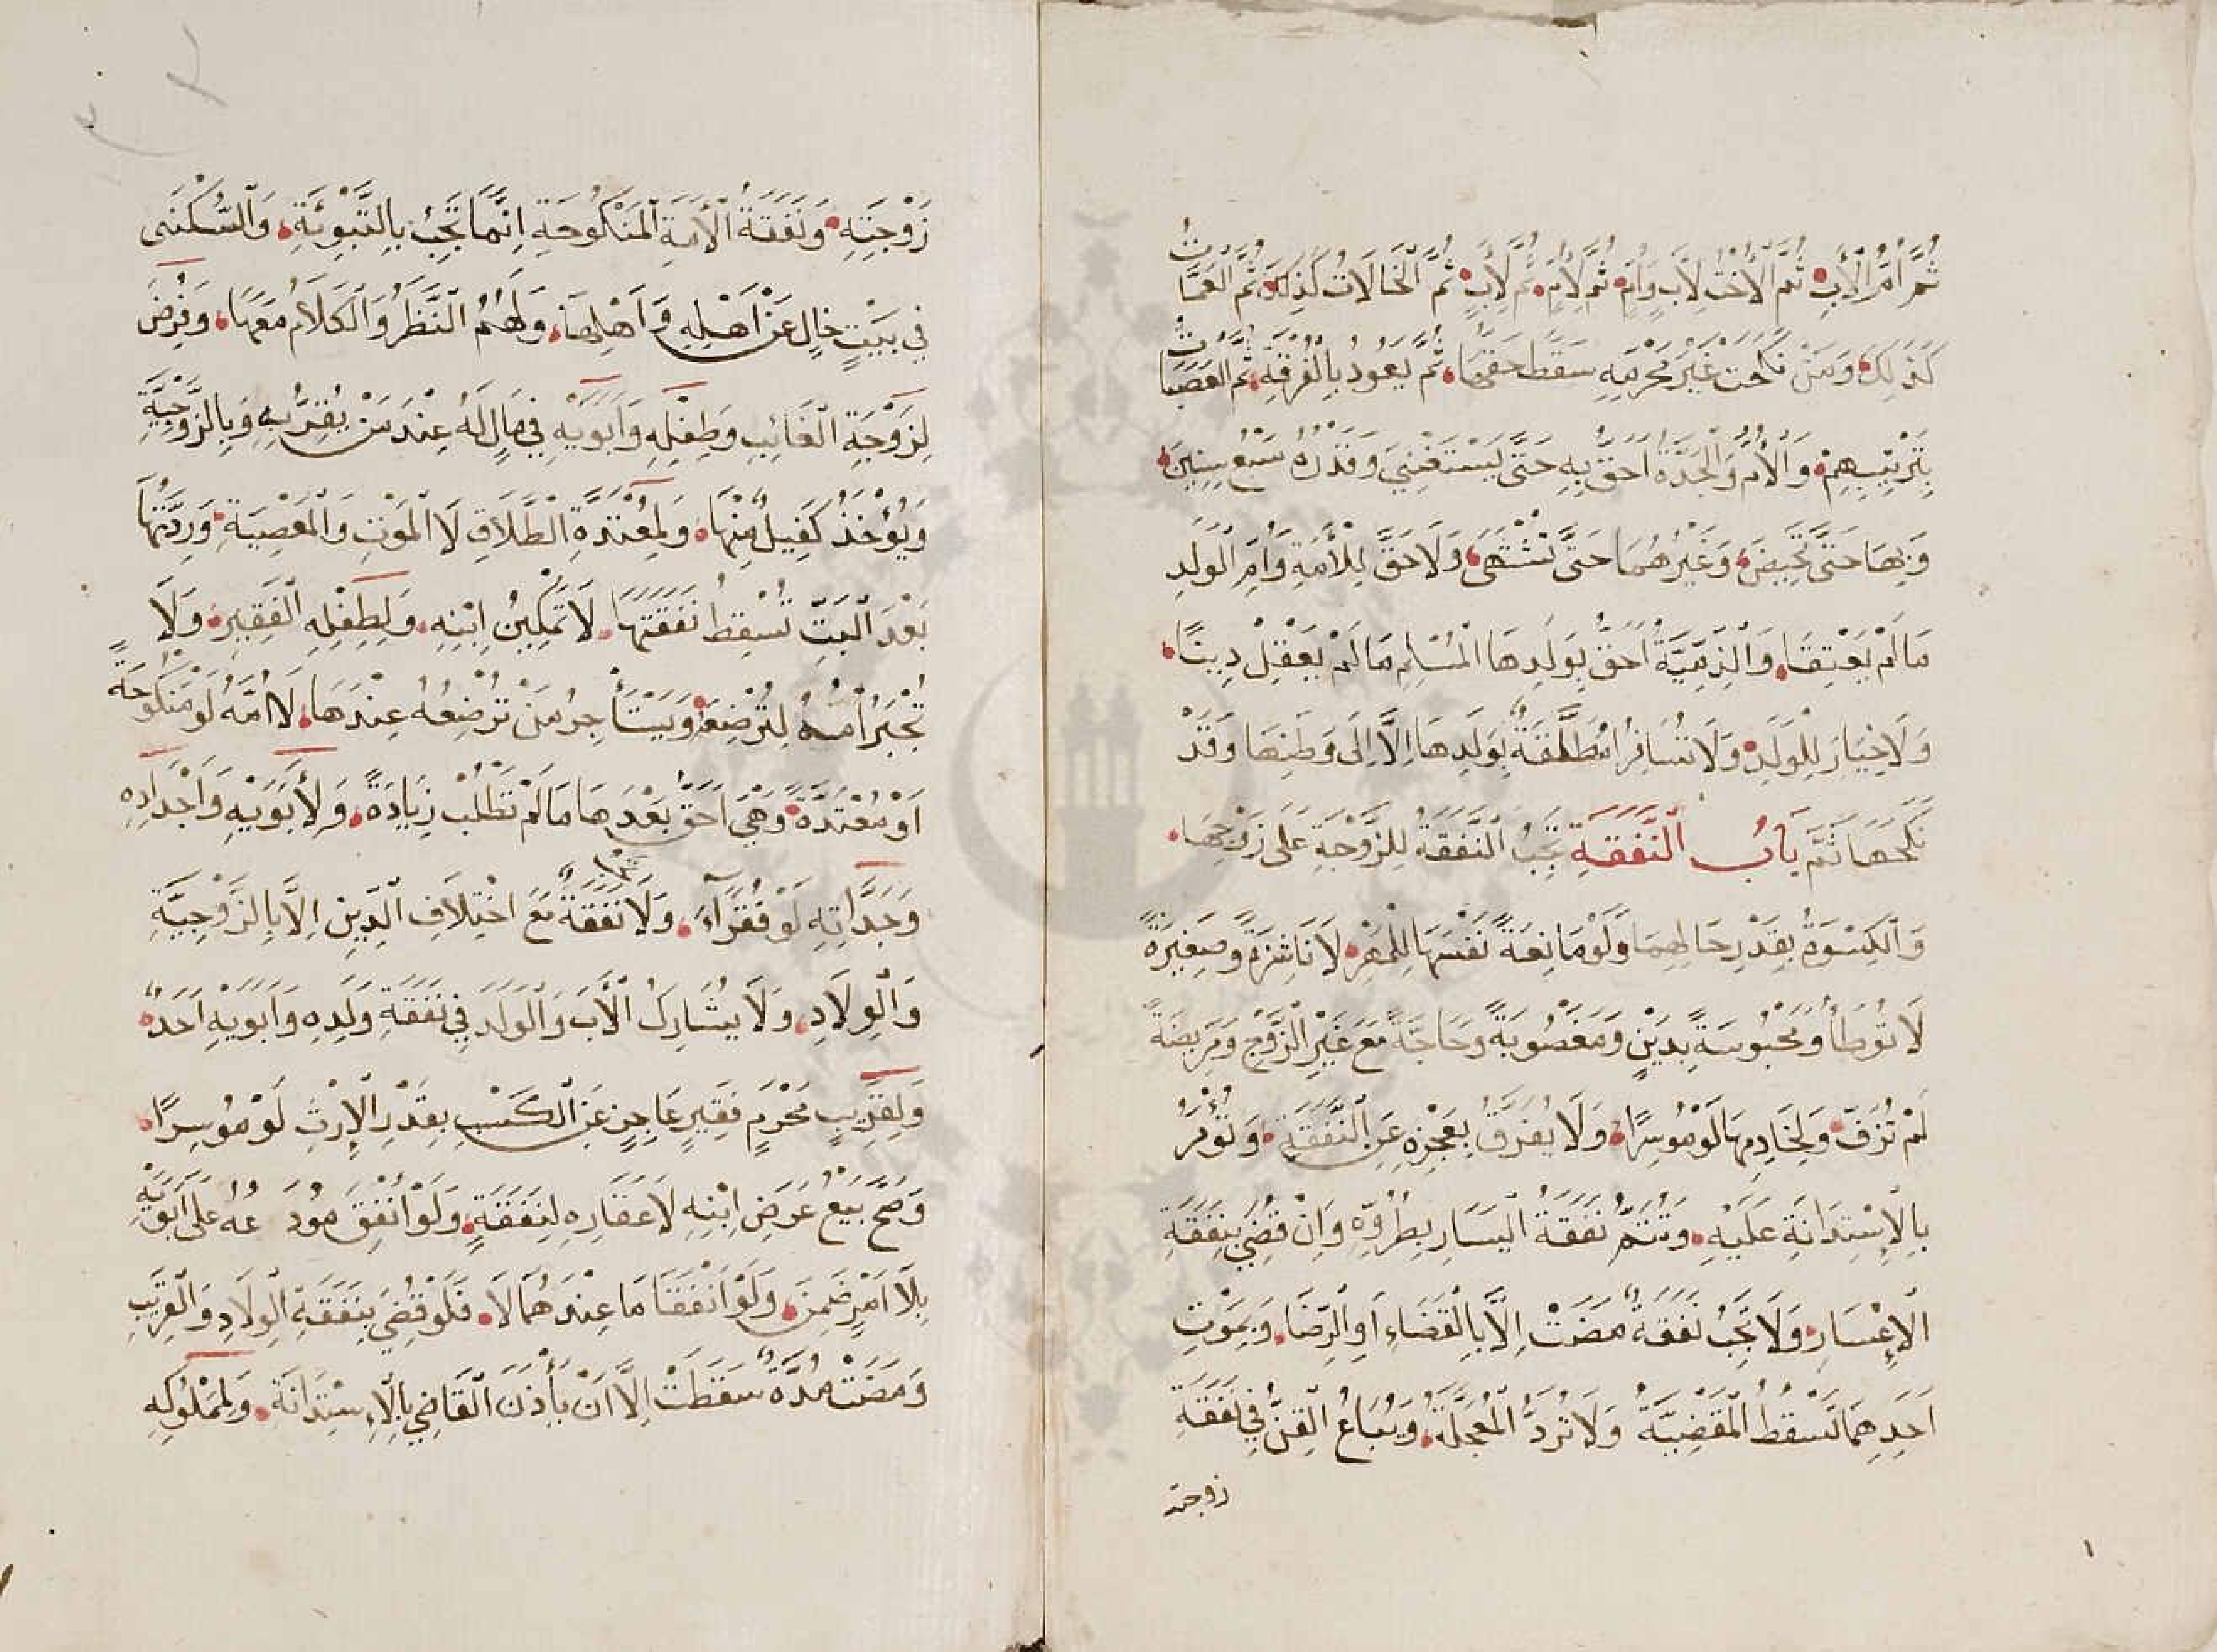 ثُمَّ أُمُّ الْأَبِ ثُمَّ الْأُخْتُ لِأَبٍ وَأُمٍّ ثُمَّ لِأُمٍّ ثُمَّ لِأَبٍ ثُمَّ الْخَالَاتُ كَذَلِكَ ثُمَّ الْعَمَّاتُ
كَذَلِكَ وَمَنْ نَكَحَتْ غَيْرَ مَحْرَمِهِ سَقَطَ حَقُّهَا ثُمَّ يَعُودُ بِالْفُرْقَةِ ثُمَّ الْعَصَبَاتُ
بِتَرْتِيبِهِمْ وَالْأُمُّ وَالْجَدَّةُ أَحَقُّ بِهِ حَتَّى يَسْتَغْنِيَ وَقُدِّرَ سَبْعُ سِنِينَ
وَبِهَا حَتَّى تَحِيضَ وَغَيْرُهُمَا حَتَّى تُشْتَهَى وَلَا حَقَّ لِلْأَمَةِ وَأُمِّ الْوَلَدِ
مَا لَمْ يَعْتِقَا وَالذِّمِّيَّةُ أَحَقُّ بِوَلَدِهَا الْمُسْلِمِ مَا لَمْ يَعْقِلْ دِينًا
وَلَا خِيَارَ لِلْوَلَدِ وَلَا تُسَافِرُ مُطَلَّقَةٌ بِوَلَدِهَا إِلَّا إِلَى وَطَنِهَا وَقَدْ
نَكَحَهَا ثَمَّ بَابُ النَّفَقَةِ تَجِبُ النَّفَقَةُ لِلزَّوْجَةِ عَلَى زَوْجِهَا
وَالْكِسْوَةُ بِقَدْرِ حَالِهِمَا وَلَوْ مَانِعَةً نَفْسَهَا لِلْمَهْرِ لَا نَاشِزَةً وَصَغِيرَةً
لَا تُوطَأُ وَمَحْبُوسَةً بِدَيْنٍ وَمَغْصُوبَةً وَحَاجَّةً مَعَ غَيْرِ الزَّوْجِ وَمَرِيضَةً
لَمْ تُزَفَّ وَلِخَادِمِهَا لَوْ مُوسِرًا وَلَا يُفَرَّقُ بِعَجْزِهِ عَنِ النَّفَقَةِ وَتُؤْمَرُ
بِالْإِسْتِدَانَةِ عَلَيْهِ وَتُتَمُّ نَفَقَةُ الْيَسَارِ بِطُرُوِّهِ وَإِنْ قُضِيَ بِنَفَقَةِ
الْإِعْسَارِ وَلَا تَجِبُ نَفَقَةٌ مَضَتْ إِلَّا بِالْقَضَاءِ أَوِ الرِّضَا وَبِمَوْتِ
أَحَدِهِمَا تَسْقُطُ الْمَقْضِيَّةُ وَلَا تُرَدُّ الْمُعَجَّلَةُ وَيُبَاعُ الْقِنُّ فِي نَفَقَةِ
زوجته
زَوْجَتِهِ وَنَفَقَةُ الْأَمَةِ الْمَنْكُوحَةِ إِنَّمَا تَجِبُ بِالتَّبْوِئَةِ وَالسُّكْنَى
فِي بَيْتٍ خَالٍ عَنْ أَهْلِهِ وَأَهْلِهَا وَلَهُمُ النَّظَرُ وَالْكَلَامُ مَعَهَا وَفُرِضَ
لِزَوْجَةِ الْغَائِبِ وَطِفْلِهِ وَأَبَوَيْهِ فِي مَالٍ لَهُ عِنْدَ مَنْ يُقِرُّ بِهِ وَبِالزَّوْجِيَّةِ
وَيُؤْخَذُ كَفِيلٌ مِنْهَا وَلِمُعْتَدَّةِ الطَّلَاقِ لَا الْمَوْتِ وَالْمَعْصِيَةِ وَرِدَّتُهَا
بَعْدَ الْبَتِّ تُسْقِطُ نَفَقَتَهَا لَا تَمْكِينُ ابْنِهِ وَلِطِفْلِهِ الْفَقِيرِ وَلَا
تُجْبَرُ أُمُّهُ لِتُرْضِعَ وَيَسْتَأْجِرُ مَنْ تُرْضِعُهُ عِنْدَهَا لَا أُمَّهُ لَوْ مَنْكُوحَةً
أَوْ مُعْتَدَّةً وَهِيَ أَحَقُّ بَعْدَهَا مَا لَمْ تَطْلُبْ زِيَادَةً وَلِأَبَوَيْهِ وَأَجْدَادِهِ
وَجَدَّاتِهِ لَوْ فُقَرَاءَ وَلَا نَفَقَةَ مَعَ اخْتِلَافِ الدِّينِ إِلَّا بِالزَّوْجِيَّةِ
وَالْوِلَادِ وَلَا يُشَارِكُ الْأَبَ وَالْوَلَدَ فِي نَفَقَةِ وَلَدِهِ وَأَبَوَيْهِ أَحَدٌ
وَلِقَرِيبٍ مَحْرَمٍ فَقِيرٍ عَاجِزٍ عَنِ الْكَسْبِ بِقَدْرِ الْإِرْثِ لَوْ مُوسِرًا
وَصَحَّ بَيْعُ عَرَضِ ابْنِهِ لَا عَقَارِهِ لِنَفَقَةٍ وَلَوْ أَنْفَقَ مُودَعُهُ عَلَى أَبَوَيْهِ
بِلَا أَمْرٍ ضَمِنَ وَلَوْ أَنْفَقَا مَا عِنْدَهُمَا لَا فَلَوْ قُضِيَ بِنَفَقَةِ الْوِلَادِ وَالْقَرِيبِ
وَمَضَتْ مُدَّةٌ سَقَطَتْ إِلَّا أَنْ يَأْذَنَ الْقَاضِي بِالْإِسْتِدَانَةِ وَلِمَمْلُوكِهِ